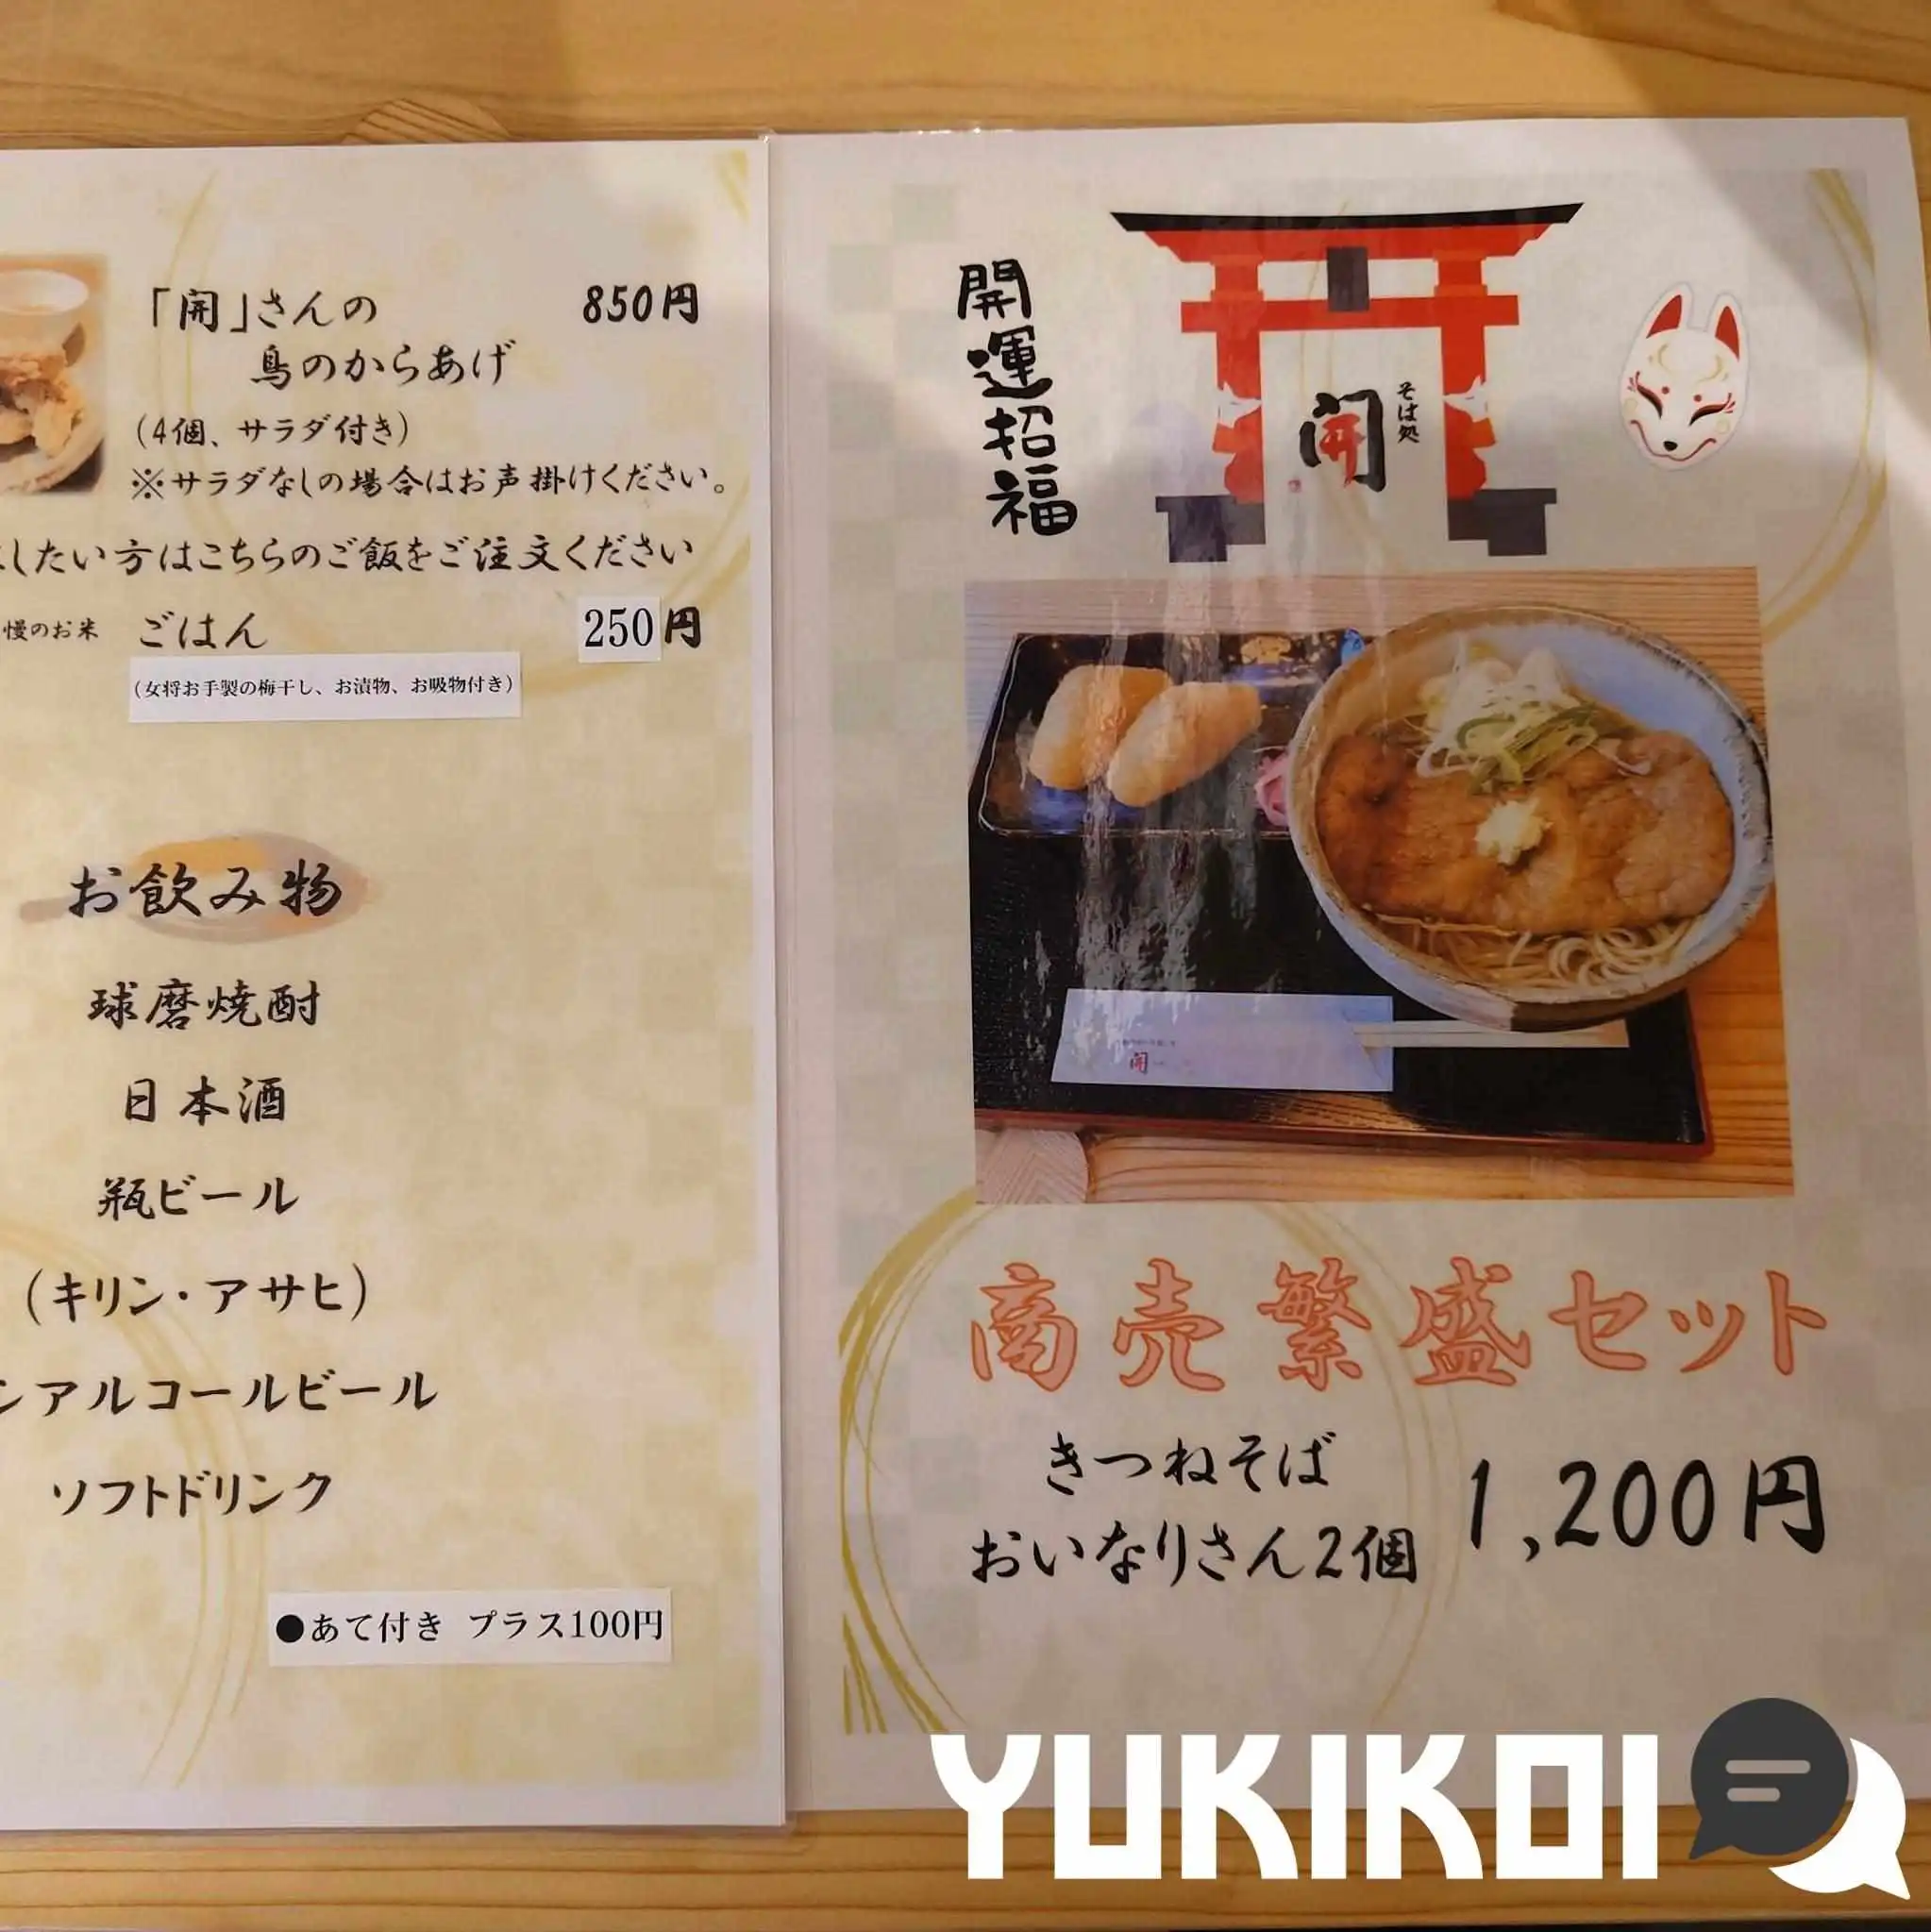 「開」さんの 850円
鳥のからあげ
(4個、サラダ付き)
※サラダなしの場合はお声掛けください。
したい方はこちらのご飯をご注文ください
慢のお米 ごはん 250円
(女将お手製の梅干し、お漬物、お吸物付き)
お飲み物
球磨焼酎
日本酒
瓶ビール
(キリン・アサヒ)
ンアルコールビール
ソフトドリンク
●あて付き プラス100円
開運招福
そば処
開
開
商売繁盛セット
きつねそば
おいなりさん2個
1,200円
YUKIKOI